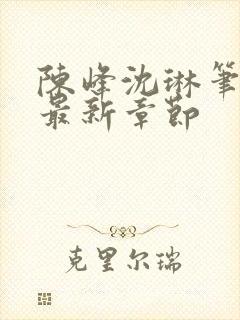 陳峰沈琳筆
最新章節
克里尔瑞